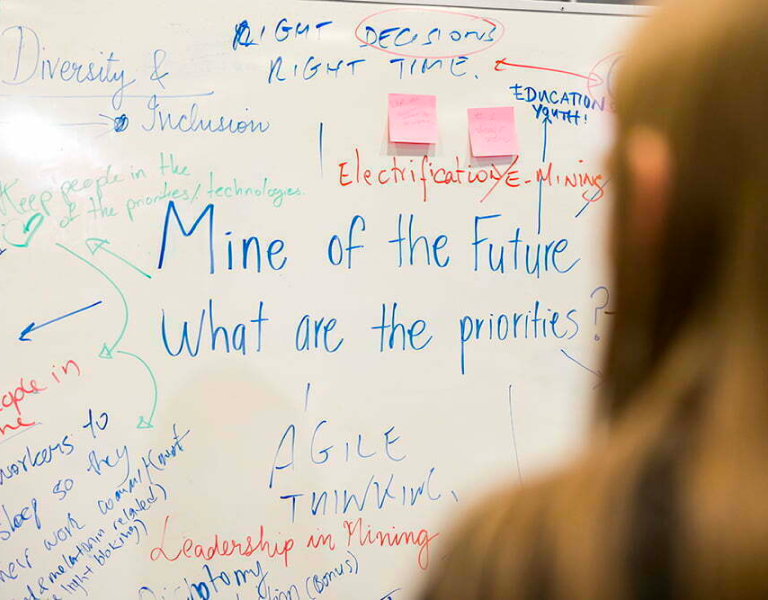 RIGHT DECISIONS
RIGHT TIME.
Diversity &
Inclusion
EDUCATION
YOUTH!
Electrification/E-Mining
Keep people in the
of the priorities/technologies.
Mine of the Future
What are the priorities?
in
workers to
sleep so they
work
AGILE
THINKING.
Leadership in Mining
Dichotomy
(Bonus)